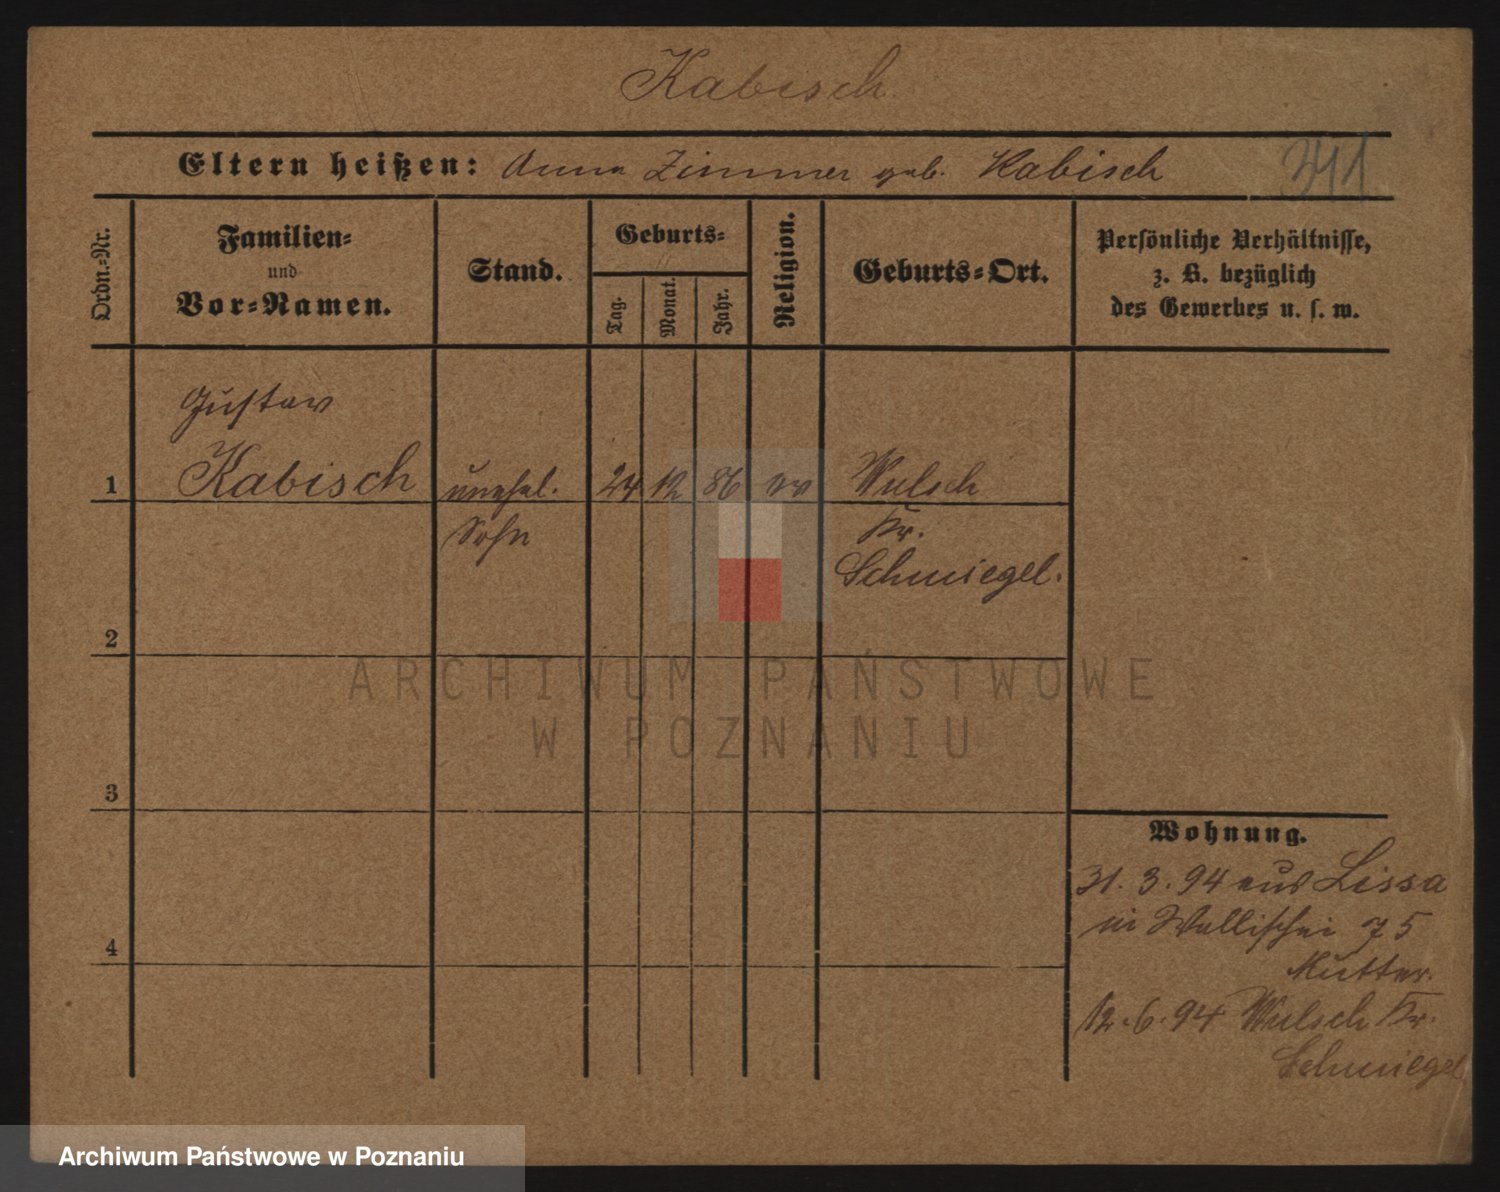 Kabisch
Eltern heißen: Anna Zimmer geb. Kabisch
341
Ordn.-Nr.
Familien-
und
Vor-Namen.
Stand.
Geburts-
Tag.
Monat.
Jahr.
Religion.
Geburts-Ort.
Persönliche Verhältnisse,
z. B. bezüglich
des Gewerbes u. s. w.
Gustav
1 Kabisch unehel. 24 12 86 ev Wulsch
Sohn Kr.
Schmiegel.
2
3
4
Wohnung.
31. 3. 94 aus Lissa
in Wallischei 75
Mutter.
12. 6. 94 Wulsch Kr.
Schmiegel
ARCHIWUM PAŃSTWOWE
W POZNANIU
Archiwum Państwowe w Poznaniu